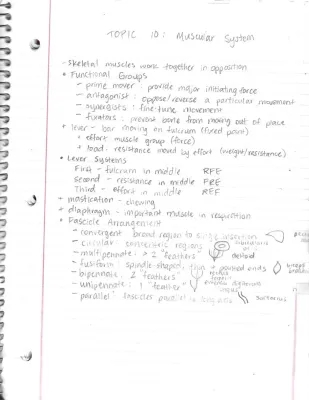 TOPIC 10: Muscular System
- Skeletal muscles work together in opposition
• Functional Groups
- prime mover: provide major initiating force
- antagonist: oppose/reverse a particular movement
- synergists: fine-tune movement
- fixators: prevent bone from moving out of place
+ lever - bar moving on fulcrum (fixed point)
+ effort: muscle group (force)
+ load: resistance moved by effort (weight/resistance)
• Lever Systems
First - fulcrum in middle RFE
Second - resistance in middle
Third - effort in middle
- mastication - chewing
+ diaphragm - important muscle in respiration
• Fascicle Arrangement
- convergent: broad region to single insertion
- circular: concentric regions
- multipennate: > 2 "feathers" deltoid
- fusiform: spindle-shaped, ends
- bipennate: 2 "feathers" rectus femoris
- unipennate: 1 "feather" extensor digitorum longus
- parallel: fascicles parallel sartorius